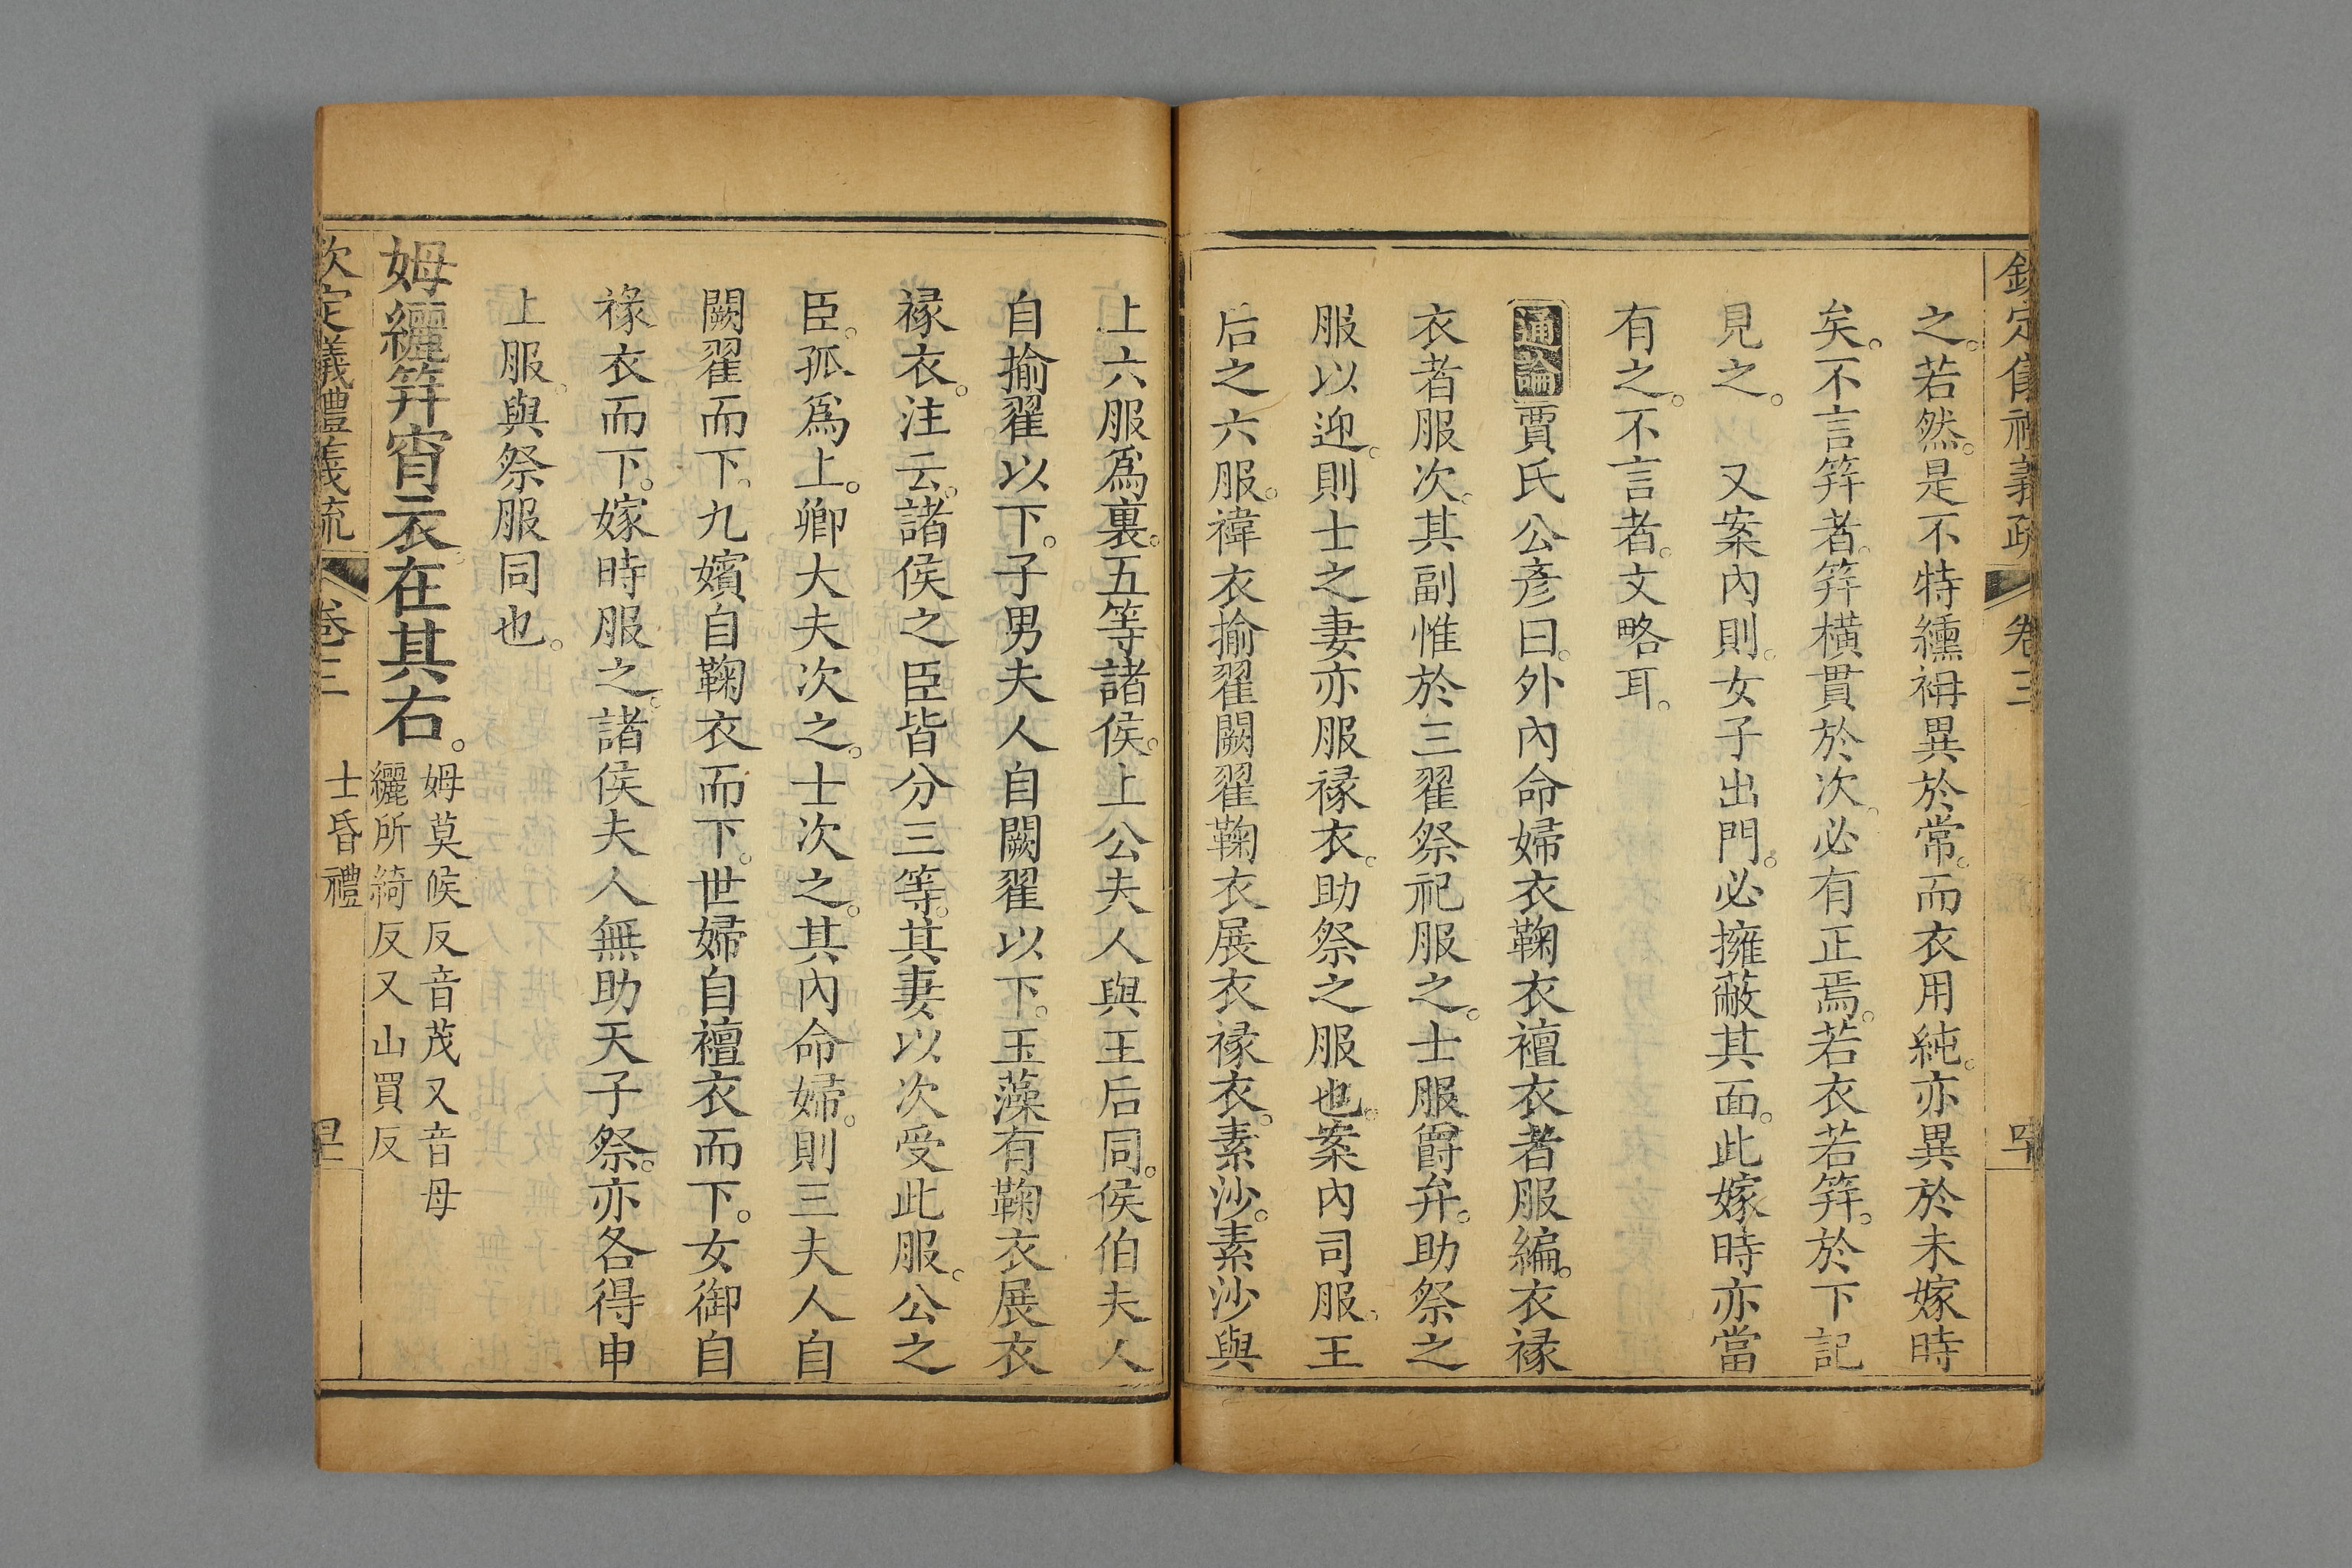 之。若然。是不特纁袡異於常。而衣用純。亦異於未嫁時
矣。不言笄者。笄橫貫於次。必有正焉。若衣若笄。於下記
見之。 又案內則。女子出門。必擁蔽其面。此嫁時亦當
有之。不言者。文略耳。
通論賈氏公彥曰。外內命婦衣鞠衣襢衣者服編。衣褖
衣者服次。其副惟於三翟祭祀服之。士服爵弁。助祭之
服以迎。則士之妻亦服褖衣。助祭之服也。案內司服。王
后之六服。褘衣揄翟闕翟鞠衣展衣褖衣。素沙。素沙與
上六服爲裏。五等諸侯。上公夫人與王后同。侯伯夫人
自揄翟以下。子男夫人自闕翟以下。玉藻有鞠衣展衣
褖衣。注云。諸侯之臣皆分三等。其妻以次受此服。公之
臣。孤爲上。卿大夫次之。士次之。其內命婦。則三夫人自
闕翟而下。九嬪自鞠衣而下。世婦自襢衣而下。女御自
褖衣而下。嫁時服之。諸侯夫人無助天子祭。亦各得申
上服。與祭服同也。
姆纚笄宵衣在其右。
姆莫候反音茂又音母
纚所綺反又山買反
欽定儀禮義疏 卷三 士昏禮